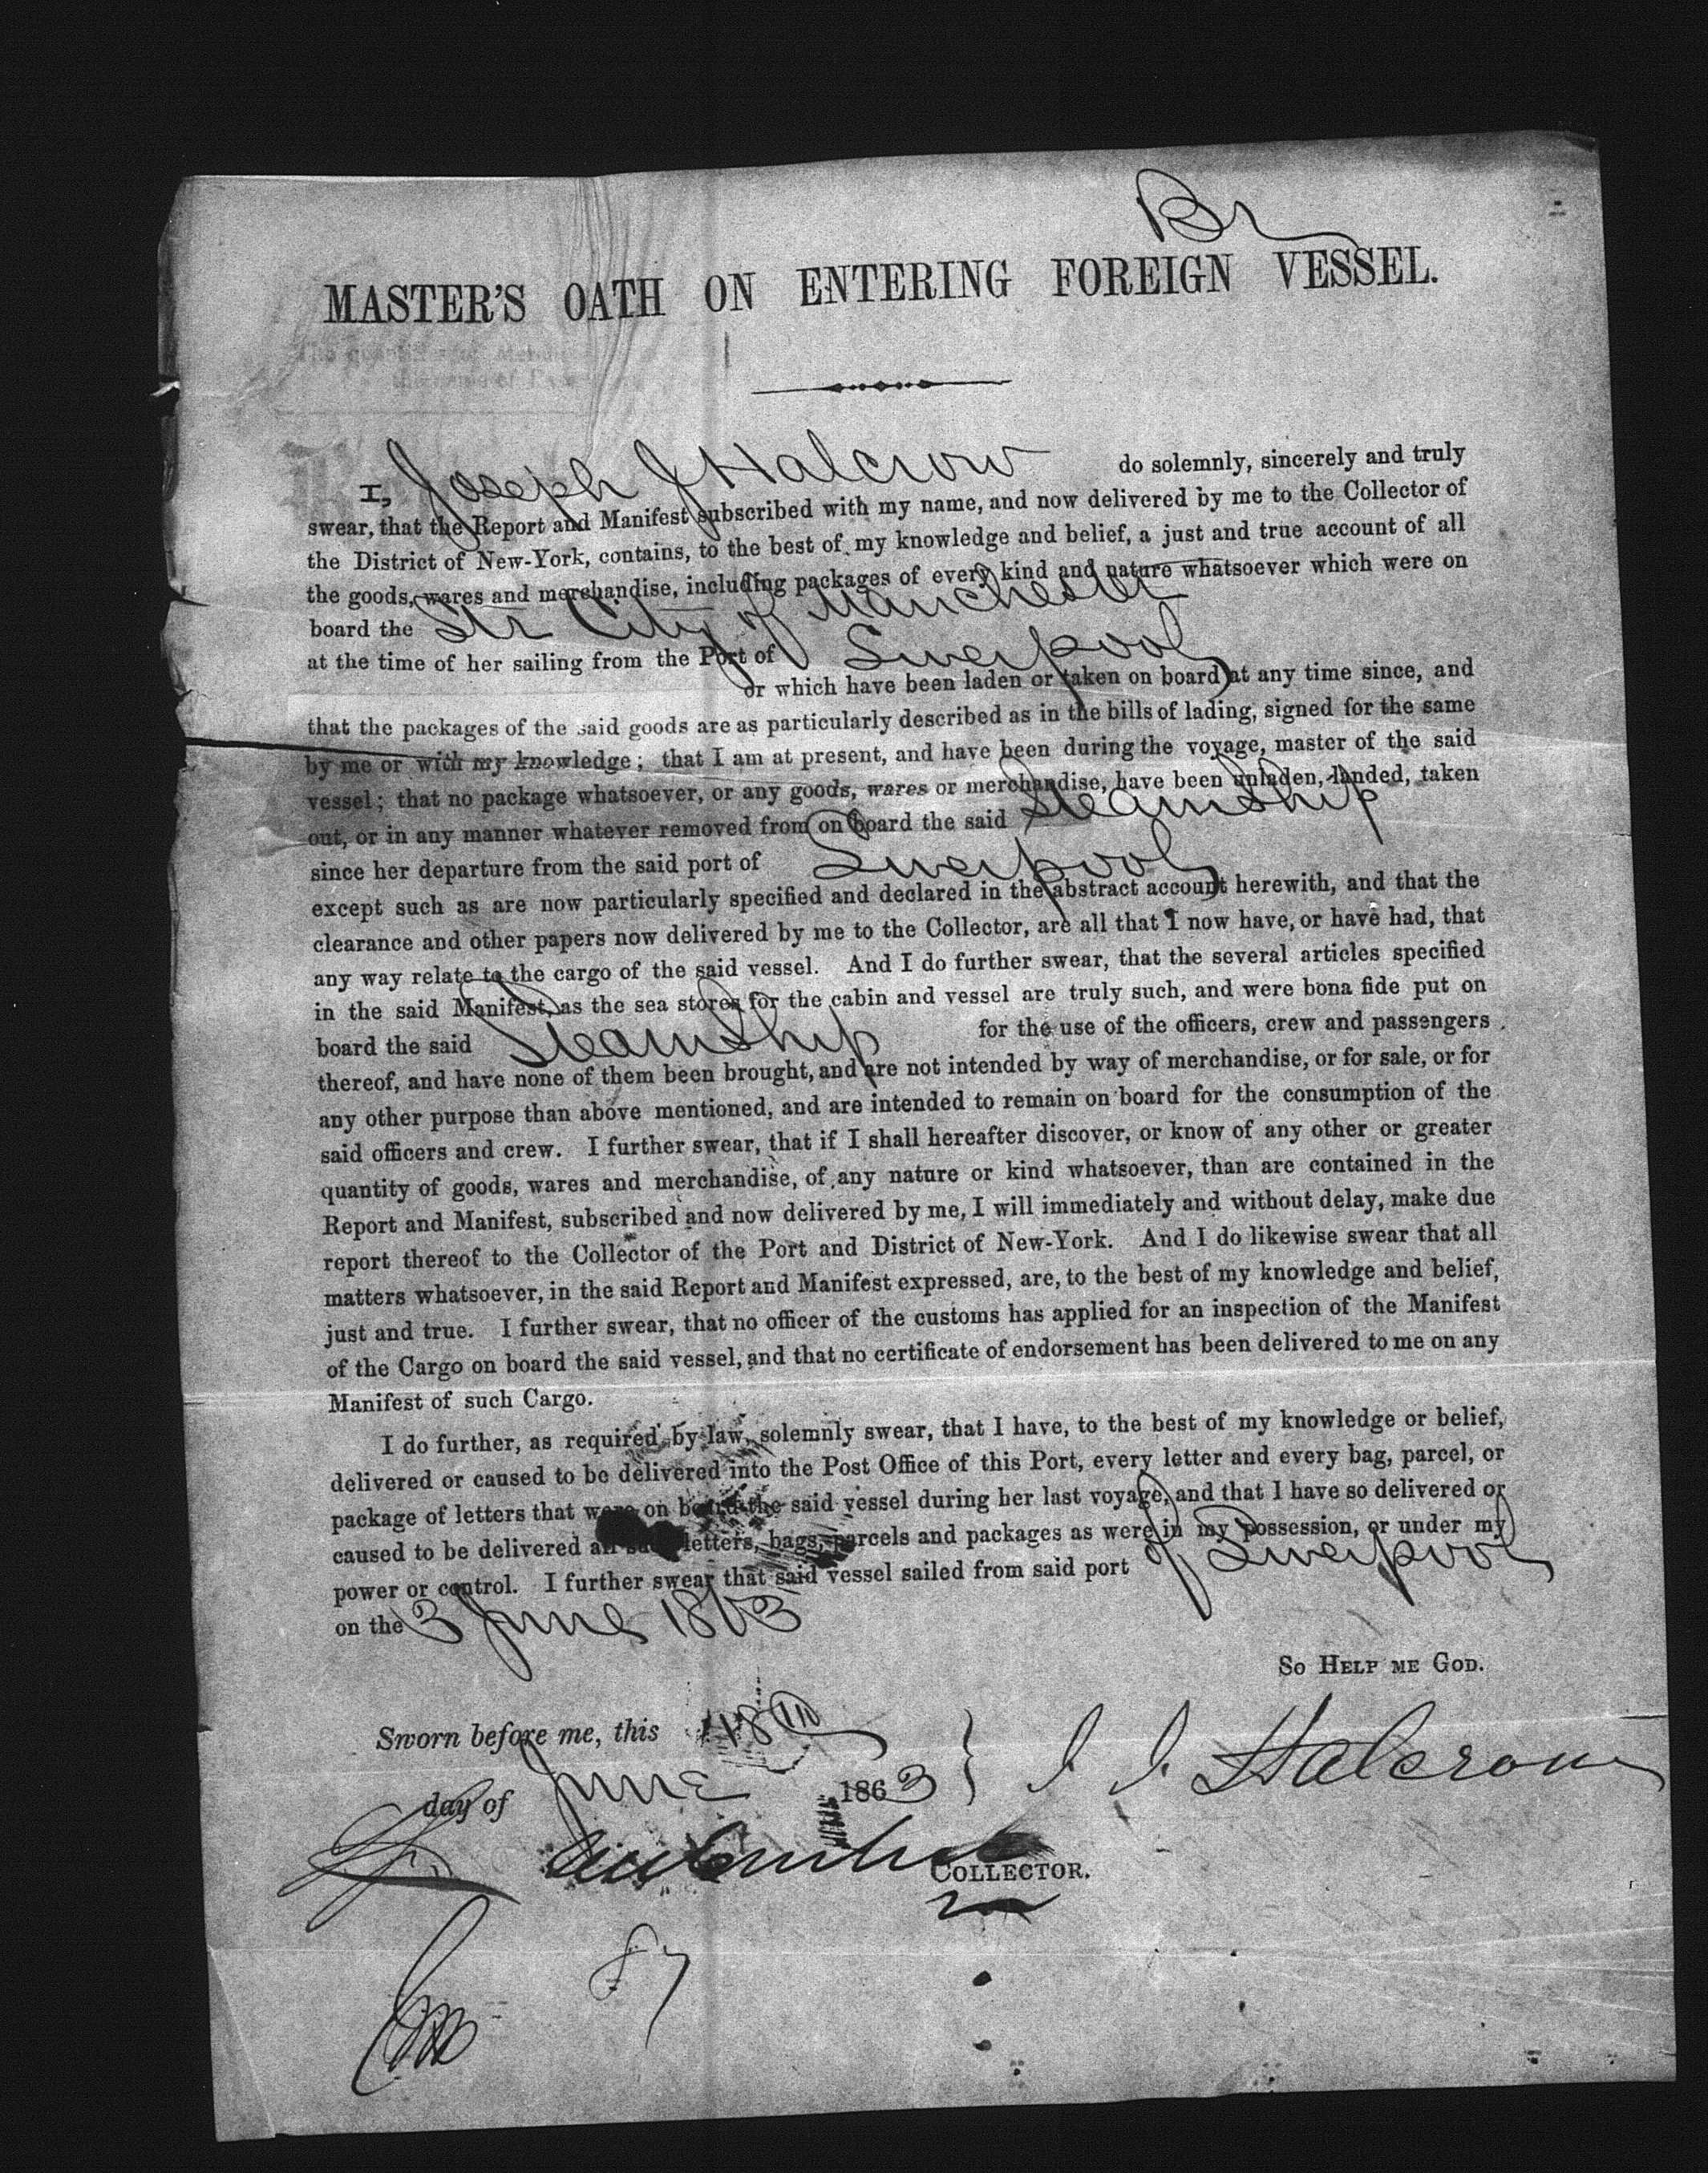 Br
MASTER'S OATH ON ENTERING FOREIGN VESSEL.
I, Joseph J Halcrow do solemnly, sincerely and truly
swear, that the Report and Manifest subscribed with my name, and now delivered by me to the Collector of
the District of New-York, contains, to the best of my knowledge and belief, a just and true account of all
the goods, wares and merchandise, including packages of every kind and nature whatsoever which were on
board the Str City of Manchester
at the time of her sailing from the Port of Liverpool
or which have been laden or taken on board at any time since, and
that the packages of the said goods are as particularly described as in the bills of lading, signed for the same
by me or with my knowledge; that I am at present, and have been during the voyage, master of the said
vessel; that no package whatsoever, or any goods, wares or merchandise, have been unladen, landed, taken
out, or in any manner whatever removed from on board the said Steamship
since her departure from the said port of Liverpool
except such as are now particularly specified and declared in the abstract account herewith, and that the
clearance and other papers now delivered by me to the Collector, are all that I now have, or have had, that
any way relate to the cargo of the said vessel. And I do further swear, that the several articles specified
in the said Manifest, as the sea stores for the cabin and vessel are truly such, and were bona fide put on
board the said Steamship for the use of the officers, crew and passengers
thereof, and have none of them been brought, and are not intended by way of merchandise, or for sale, or for
any other purpose than above mentioned, and are intended to remain on board for the consumption of the
said officers and crew. I further swear, that if I shall hereafter discover, or know of any other or greater
quantity of goods, wares and merchandise, of any nature or kind whatsoever, than are contained in the
Report and Manifest, subscribed and now delivered by me, I will immediately and without delay, make due
report thereof to the Collector of the Port and District of New-York. And I do likewise swear that all
matters whatsoever, in the said Report and Manifest expressed, are, to the best of my knowledge and belief,
just and true. I further swear, that no officer of the customs has applied for an inspection of the Manifest
of the Cargo on board the said vessel, and that no certificate of endorsement has been delivered to me on any
Manifest of such Cargo.
I do further, as required by law, solemnly swear, that I have, to the best of my knowledge or belief,
delivered or caused to be delivered into the Post Office of this Port, every letter and every bag, parcel, or
package of letters that were on board the said vessel during her last voyage, and that I have so delivered or
caused to be delivered all such letters, bags, parcels and packages as were in my possession, or under my
power or control. I further swear that said vessel sailed from said port of Liverpool
on the 3 June 1863
SO HELP ME GOD.
Sworn before me, this 18th
day of June 1863 } J. J. Halcrow
COLLECTOR.
87